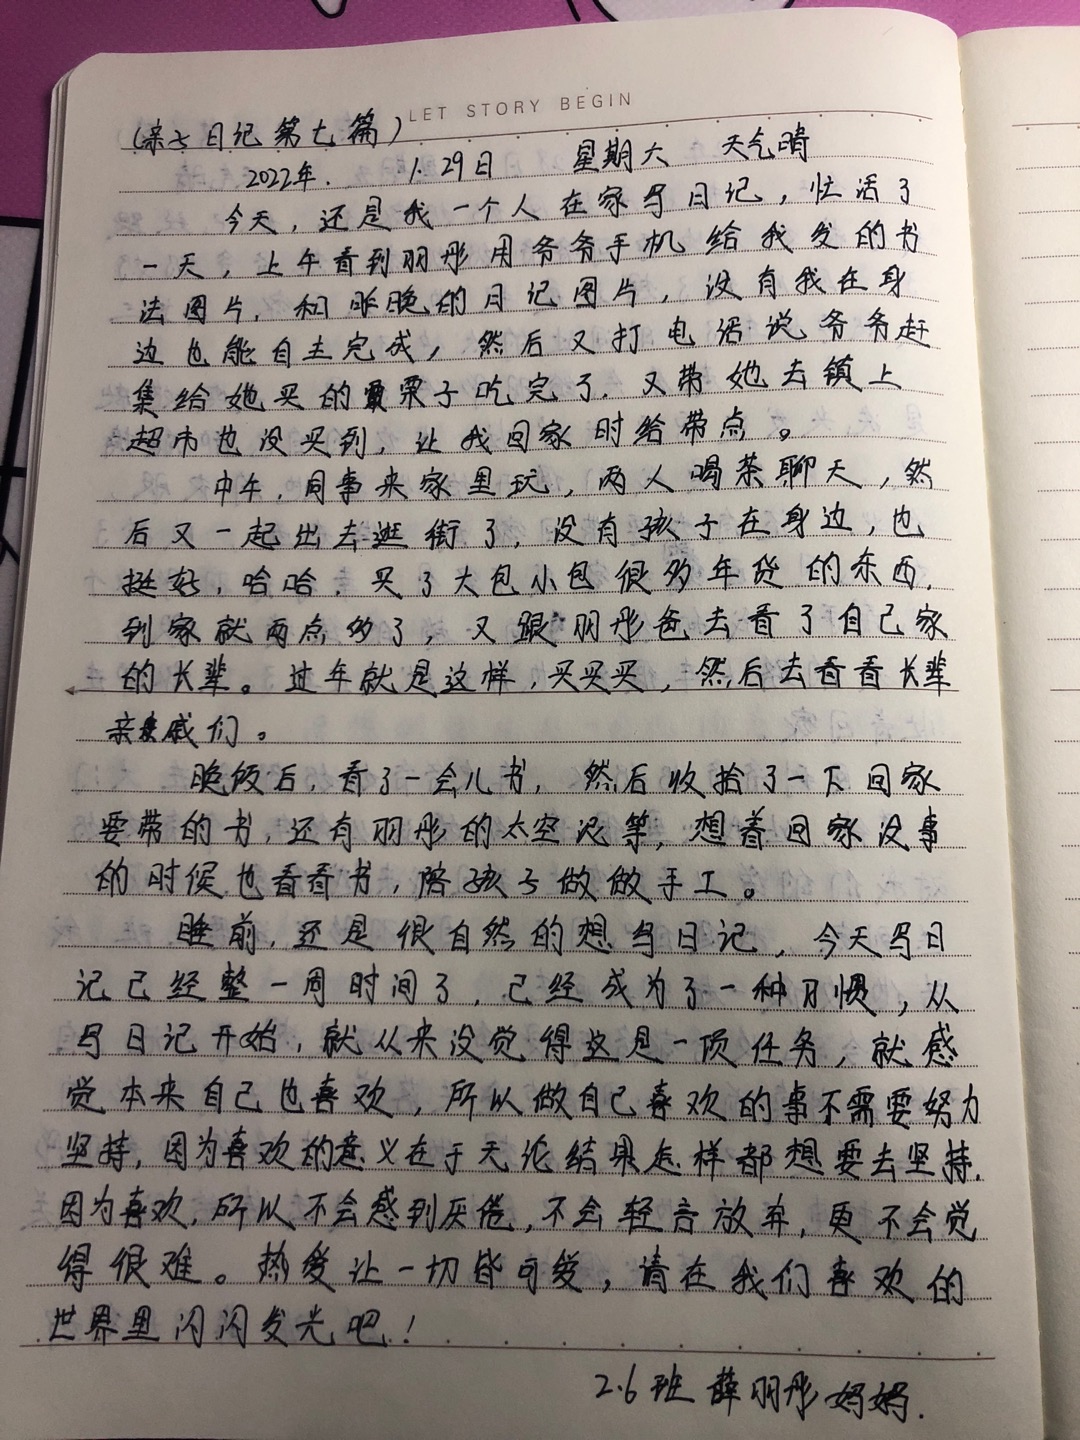 LET STORY BEGIN
(亲子日记第七篇)
2022年. 1.29日 星期六 天气晴
今天，还是我一个人在家写日记，忙活了
一天，上午看到丽彤用爷爷手机给我发的书
法图片，和昨晚的日记图片，没有我在身
边也能自主完成，然后又打电话说爷爷赶
集给她买的栗子吃完了，又带她去镇上
超市也没买到，让我回家时给带点。
中午，同事来家里玩，两人喝茶聊天，然
后又一起出去逛街了，没有孩子在身边，也
挺好，哈哈，买了大包小包很多年货的东西，
到家就两点多了，又跟丽彤爸去看了自己家
的长辈。过年就是这样，买买买，然后去看看长辈
亲戚们。
晚饭后，看了一会儿书，然后收拾了一下回家
要带的书，还有丽彤的太空泥等，想着回家没事
的时候也看看书，陪孩子做做手工。
睡前，还是很自然的想写日记，今天写日
记已经整一周时间了，已经成为了一种习惯，从
写日记开始，就从来没觉得这是一项任务，就感
觉本来自己也喜欢，所以做自己喜欢的事不需要努力
坚持，因为喜欢的意义在于无论结果怎样都想要去坚持，
因为喜欢，所以不会感到厌倦，不会轻言放弃，更不会觉
得很难。热爱让一切皆可爱，请在我们喜欢的
世界里闪闪发光吧！
2.6班 薛丽彤妈妈.